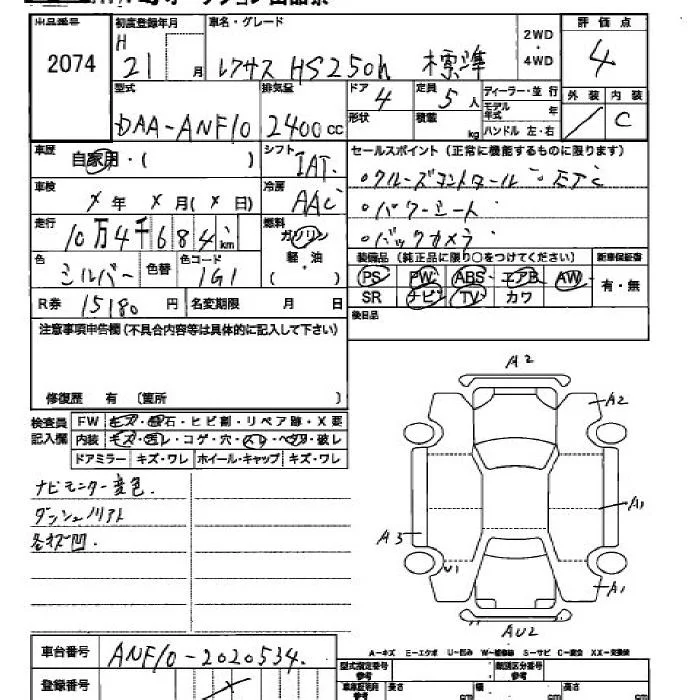 出品番号 初度登録年月 車名・グレード 2WD・4WD 評価点
2074 H 21 月 レクサス HS250h 標準 4
型式 排気量 ドア 4 定員 5人 ディーラー・並行 外装 内装
DAA-ANF10 2400cc 形状 積載 kg モデル年式 年 C
ハンドル 左・右
車歴 自家用・( ) シフト IAT セールスポイント(正常に機能するものに限ります)
・クルーズコントロール
車検 X年 X月(X日) 冷房 AAC ・パワーシート
走行 10万4千684km 燃料 ガソリン ・バックカメラ
軽・油
( )
色 シルバー 色替 色コード 1G1 装備品(純正品に限り○をつけてください) 新車保証書
PS PW ABS エアB AW 有・無
R券 15180円 名変期限 月 日 SR ナビ TV カワ
注意事項申告欄(不具合内容等は具体的に記入して下さい) 後日品
修復歴 有 〔箇所 〕
検査員記入欄 FW キズ・飛石・ヒビ割・リペア跡・X要
内装 キズ・コゲ・穴・スレ・破レ
ドアミラー キズ・ワレ ホイール・キャップ キズ・ワレ
ナビモニター変色.
A2
A2
A1
A3
U1
A1
AU2
A-キズ E-エクボ U-凹み W-補修跡 S-サビ C-腐食 XX-交換後
車台番号 ANF10-2020534.
型式指定番号 参考 類別区分番号 参考
登録番号 車庫証明用参考 長さ cm 幅 cm 高さ cm